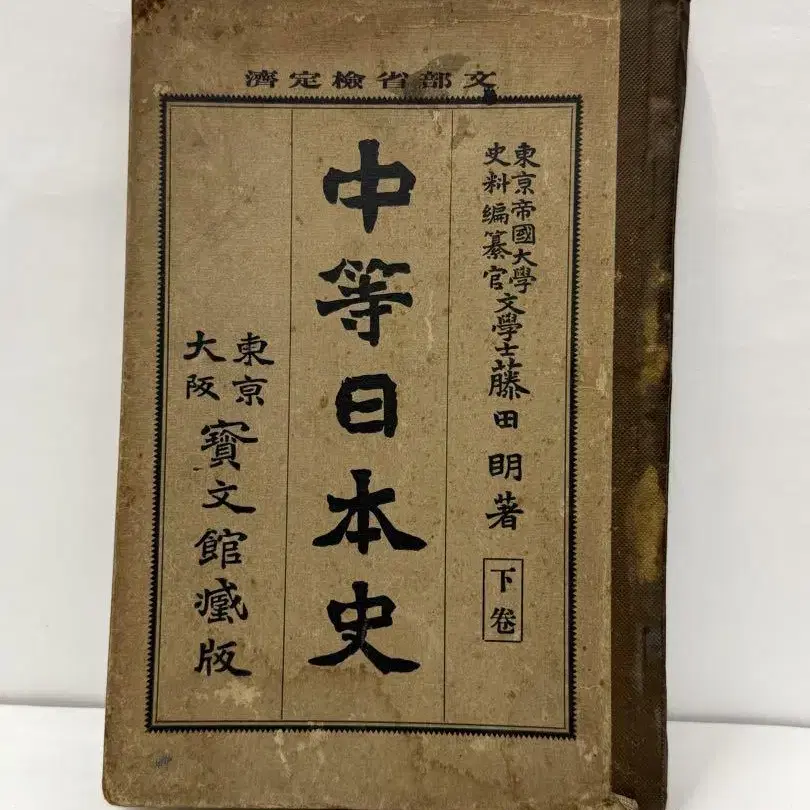 文部省檢定濟
東京帝國大學
史料編纂官文學士藤田明著
下卷
中等日本史
東京
大阪
寳文館藏版